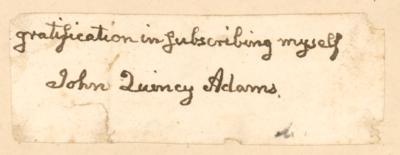 gratification in subscribing myself
John Quincy Adams.